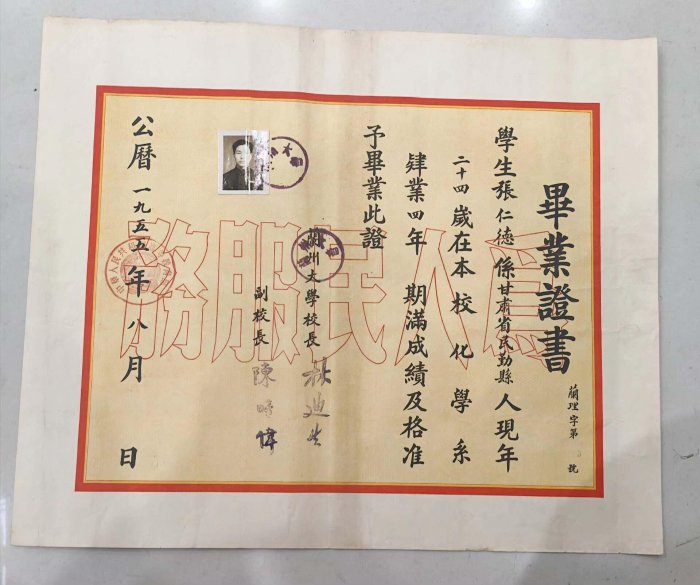 畢業證書
蘭理字第
號
學生張仁德係甘肅省民勤縣人現年
二十四歲在本校化學系
肄業四年期滿成績及格准
予畢業此證
蘭州大學校長
副校長 陳時偉
公曆一九五五年八月 日
為人民服務